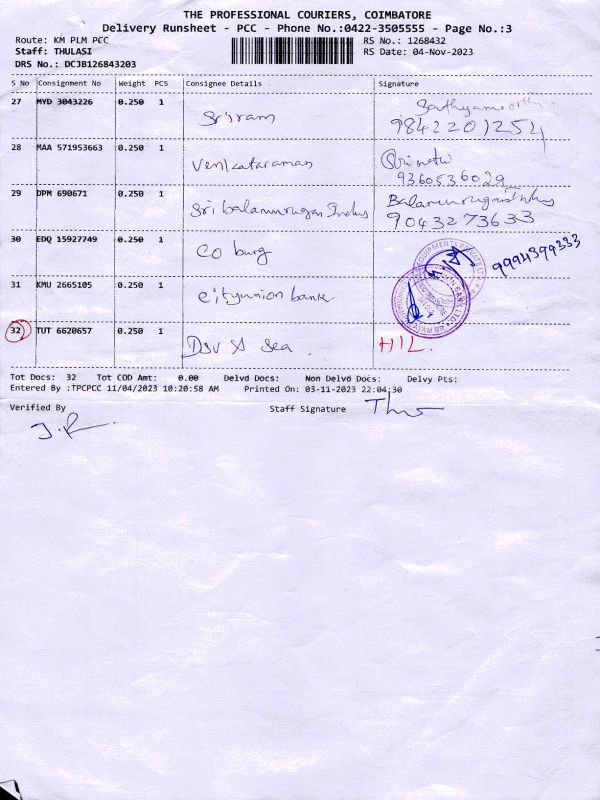 THE PROFESSIONAL COURIERS, COIMBATORE
Delivery Runsheet - PCC - Phone No.:0422-3505555 - Page No.:3
Route: KM PLM PCC
RS No.: 1268432
Staff: THULASI
RS Date: 04-Nov-2023
DRS No.: DCJB126843203
S No Consignment No Weight PCS Consignee Details Signature
27 MYD 3043226 0.250 1 Sriram
9842201254
28 MAA 571953663 0.250 1 Venkataraman
9360536029
29 DPM 690671 0.250 1 Sri balamurugan Indus Balamurugan Indus
9043273633
30 EDQ 15927749 0.250 1 Co burg 9994399333
31 KMU 2665105 0.250 1 cityunion bank
32 TUT 6620657 0.250 1 DSV A Sea. HIL.
Tot Docs: 32 Tot COD Amt: 0.00 Delvd Docs: Non Delvd Docs: Delvy Pts:
Entered By :TPCPCC 11/04/2023 10:20:58 AM Printed On: 03-11-2023 22:04:30
Verified By Staff Signature